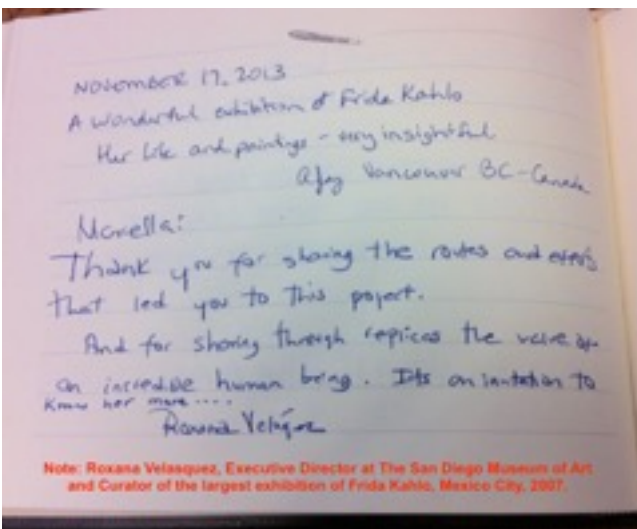 NOVEMBER 17, 2013
A wonderful exhibition of Frida Kahlo
Her life and paintings - very insightful
Vancouver BC - Canada
Marella:
Thank you for sharing the routes and
that led you to this project.
And for sharing through replicas the of
an incredible human being. Its an invitation to
know her more ....
Roxana Velásquez
Note: Roxana Velasquez, Executive Director at The San Diego Museum of Art
and Curator of the largest exhibition of Frida Kahlo, Mexico City, 2007.